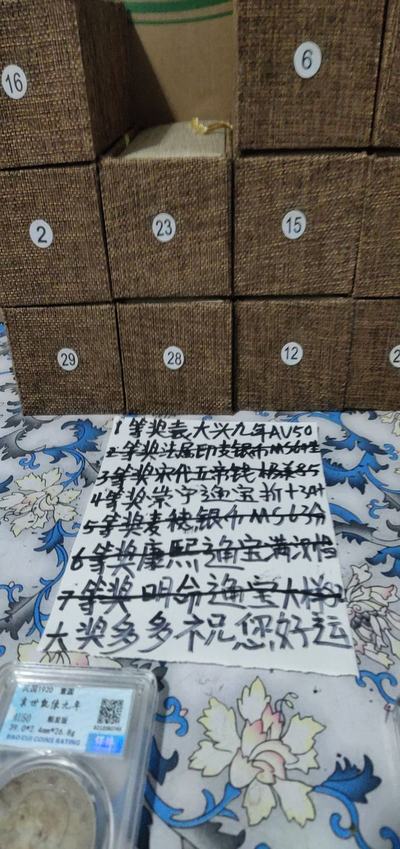 16
6
2
23
15
29
28
12
1等奖袁大头九年AU50
2等奖法属印支银币MS64
3等奖宋代五帝钱极美85
4等奖崇宁通宝折十
5等奖麦穗银币MS63分
6等奖康熙通宝满汉
7等奖明命通宝大样
大奖多多祝您好运
民国1920
袁世凯像九年
AU50
39.0*2.4mm*26.8g
BAO CUI COINS RATING